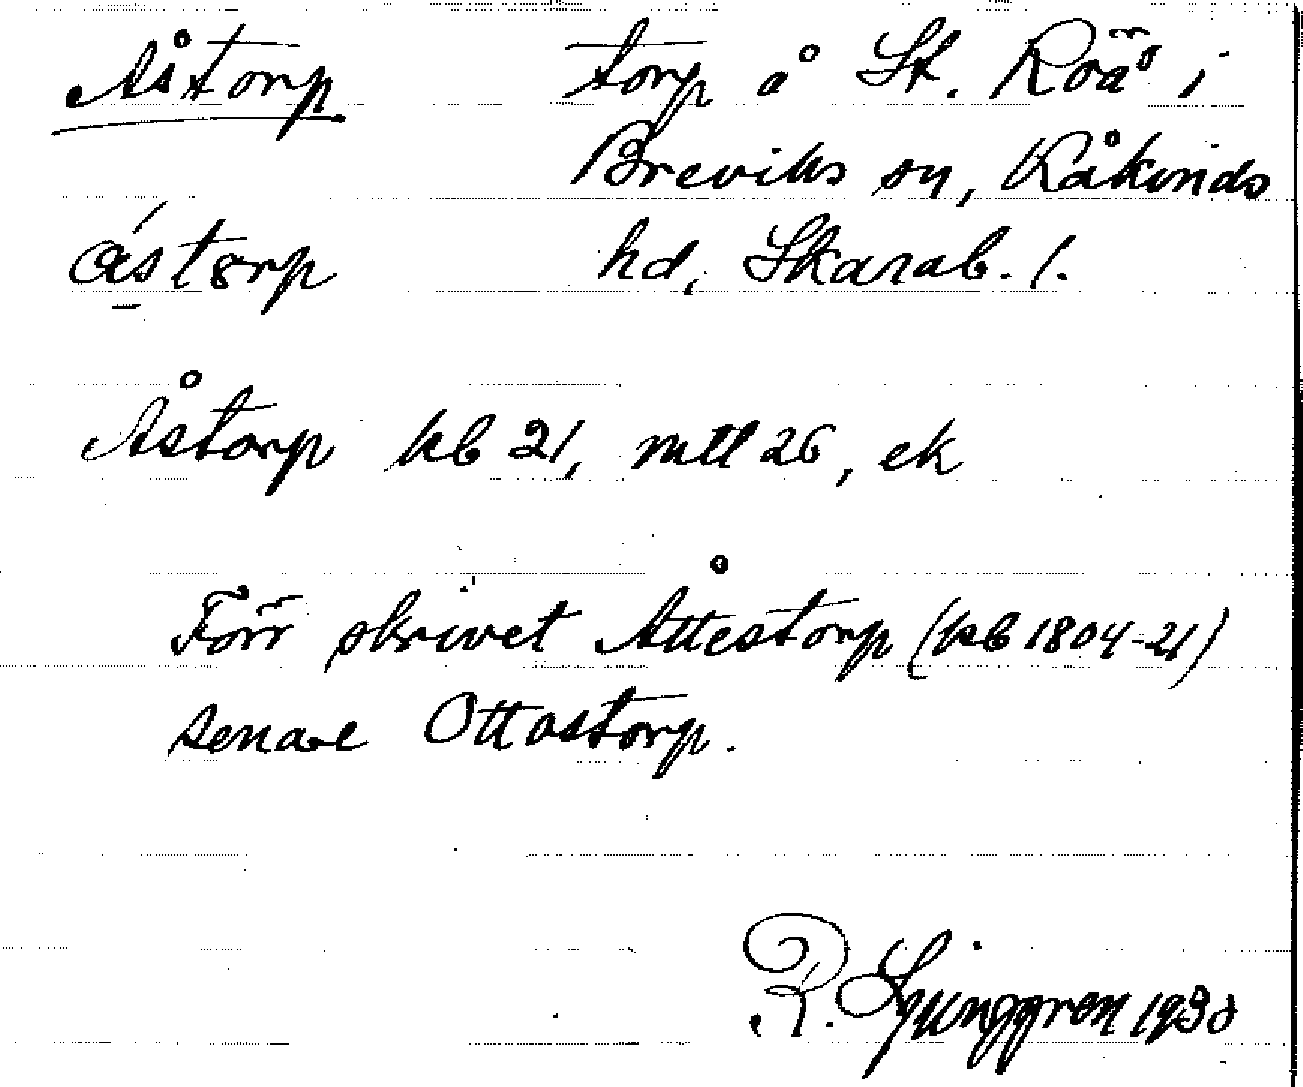 Åstorp torp å St. Röå i
Breviks sn, Kåkinds
ástorp hd, Skarab. l.
Åstorp kb 21, mtl 26, ek
Förr skrivet Åttestorp (kb 1804-21)
senare Ottostorp.
R. Ljunggren 1930